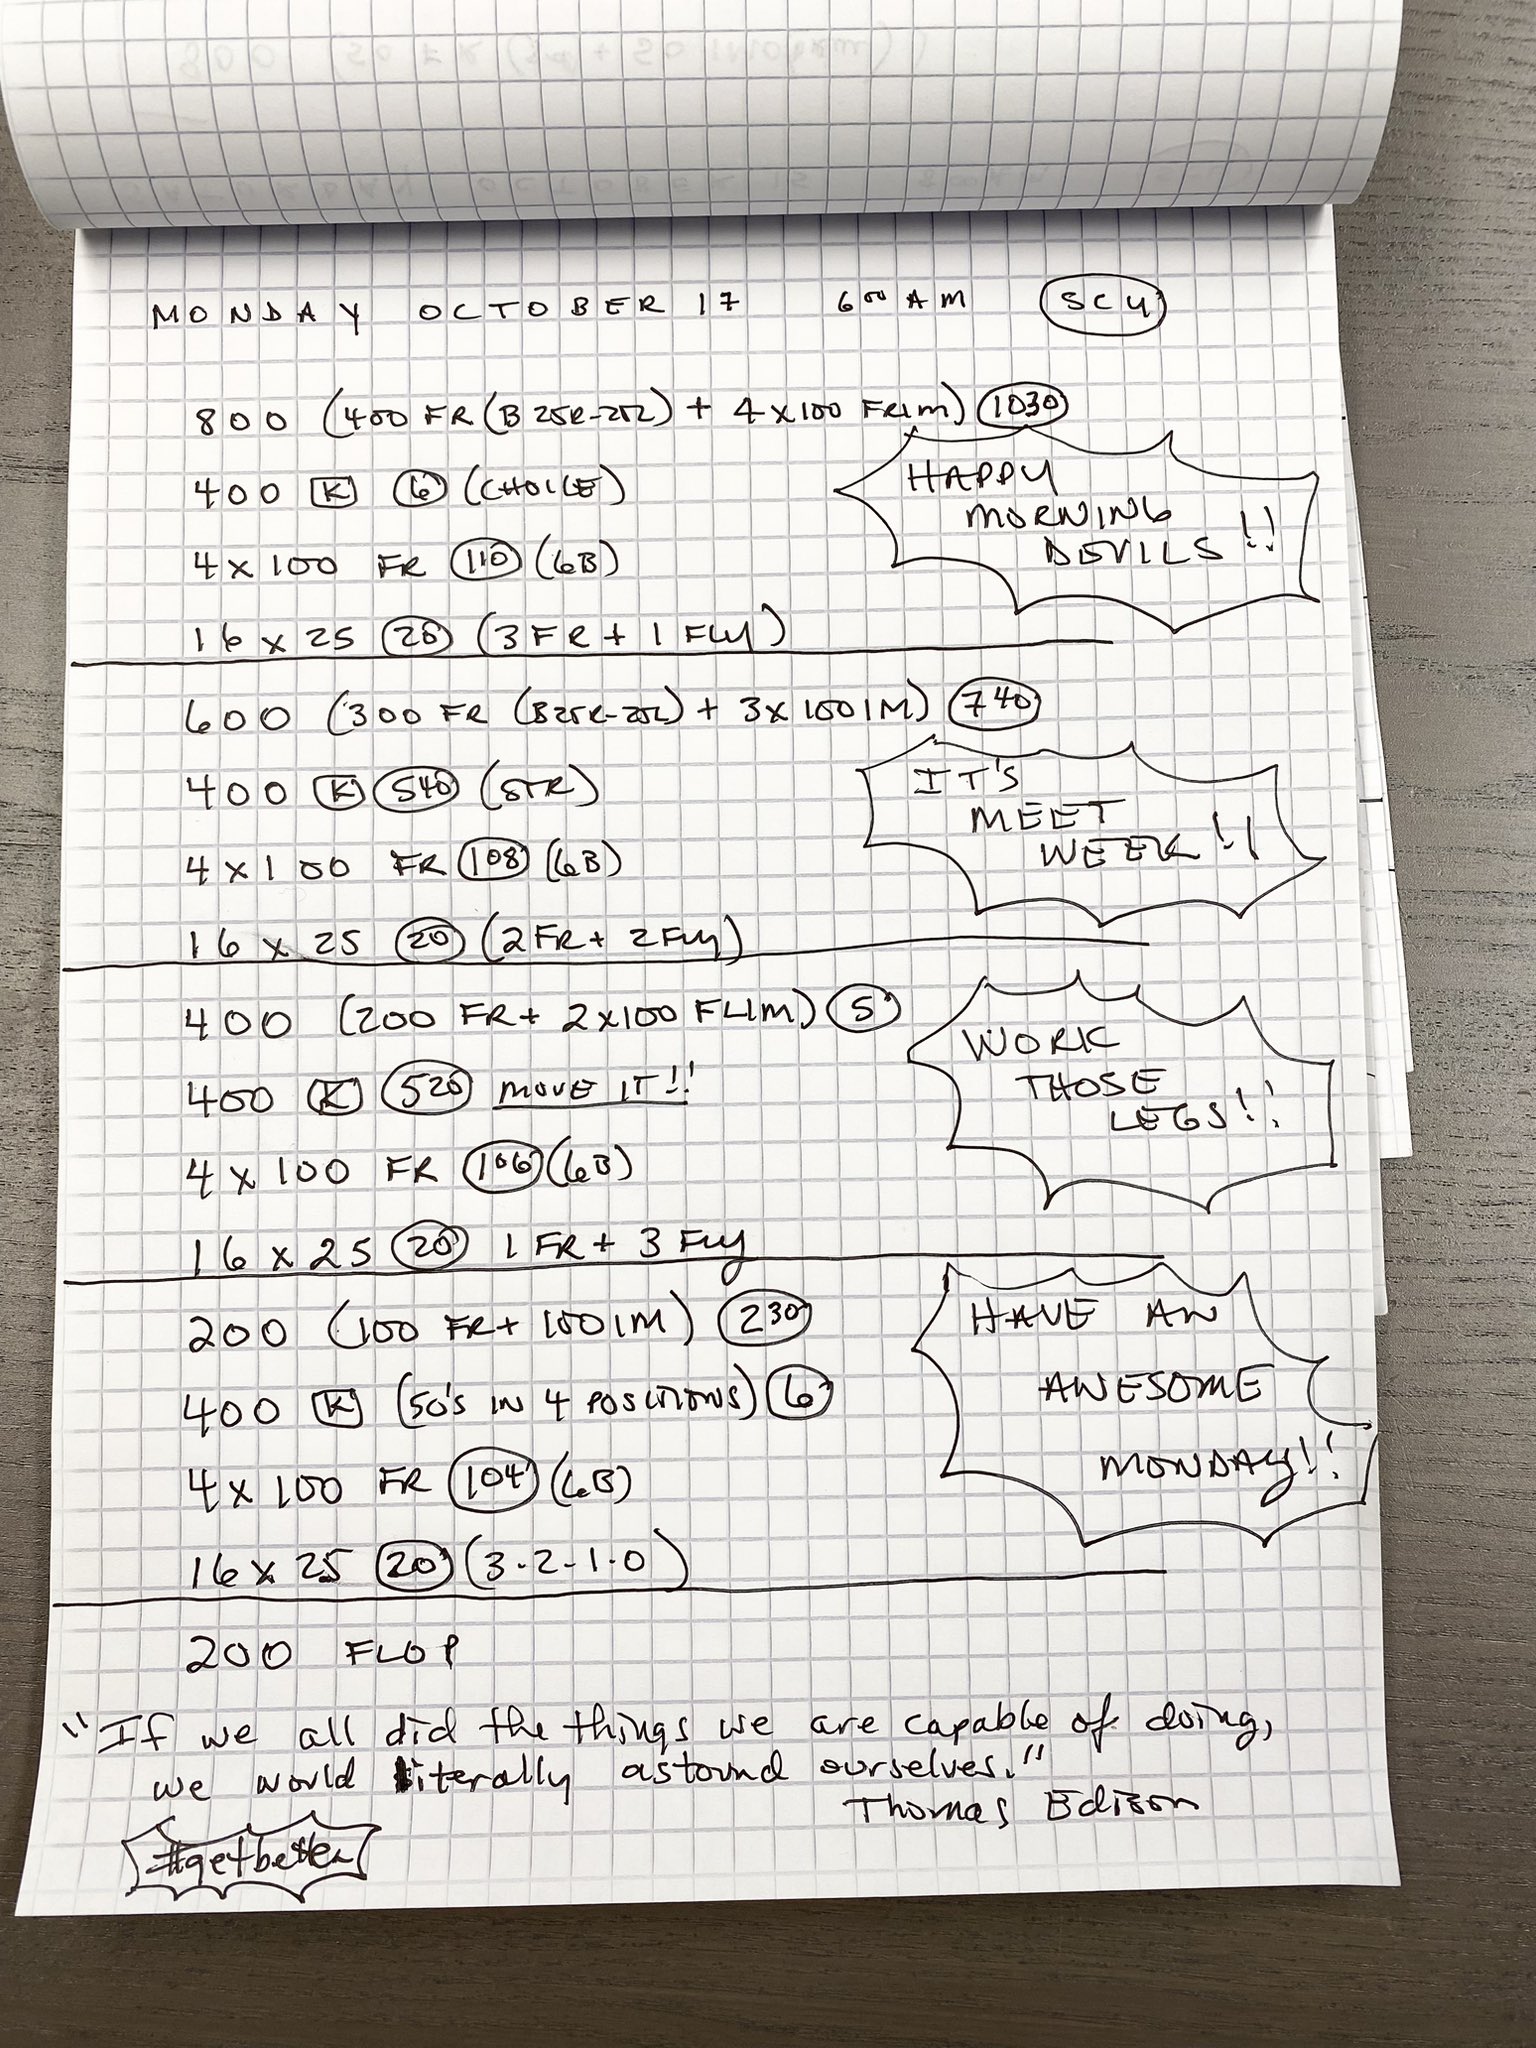 MONDAY OCTOBER 17 6⁰⁰ AM SCY
800 (400 FR (B 25R-25L) + 4x100 FRIM) 10³⁰
400 K 6' (CHOICE)
HAPPY
MORNING
DEVILS!!
4 x 100 FR 1¹⁰ (6B)
16 x 25 20 (3 FR + 1 FLY)
600 (300 FR (B25R-25L) + 3x100 IM) 7⁴⁰
400 K 5⁴⁰ (STR)
IT'S
MEET
WEEK!!
4 x 100 FR 1⁰⁸ (6B)
16 x 25 20 (2 FR + 2 FLY)
400 (200 FR + 2x100 FLIM) 5'
400 K 5²⁰ MOVE IT!!
WORK
THOSE
LEGS!!
4 x 100 FR 1⁰⁶ (6B)
16 x 25 20 1 FR + 3 FLY
200 (100 FR + 100 IM) 2³⁰
400 K (50'S IN 4 POSITIONS) 6'
HAVE AN
AWESOME
MONDAY!!
4 x 100 FR 1⁰⁴ (6B)
16 x 25 20 (3-2-1-0)
200 FLOP
"If we all did the things we are capable of doing,
we would literally astound ourselves."
Thomas Edison
#getbetter